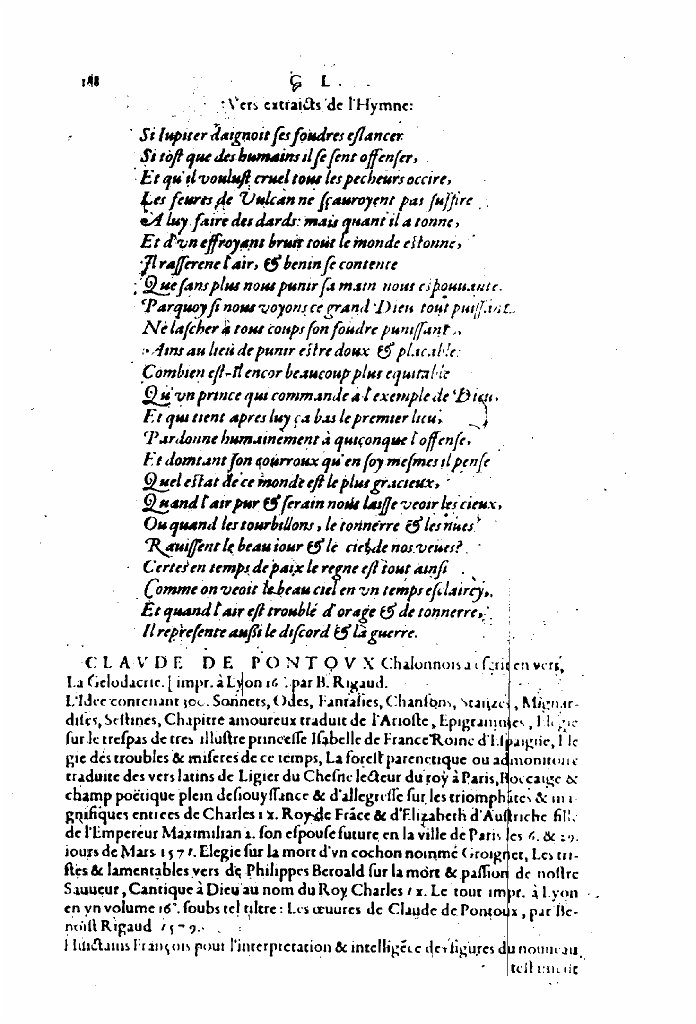 188 C L.
Vers extraicts de l'Hymne:
Si Iupiter daignoit ses foudres eslancer
Si tost que des humains il se sent offenser,
Et qu'il voulust cruel tous les pecheurs occire,
Les feures de Vulcan ne sçauroyent pas suffire
A luy faire des dards: mais quant il a tonne,
Et d'vn effroyant bruit tout le monde estonne,
Il rasserene l'air, & benin se contente
Que sans plus nous punir sa main nous espouuante.
Parquoy si nous voyons ce grand Dieu tout puissant
Ne lascher à tous coups son foudre punissant,
Ains au lieu de punir estre doux & placable:
Combien est-il encor beaucoup plus equitable
Qu'vn prince qui commande à l'exemple de Dieu,
Et qui tient apres luy ça bas le premier lieu,
Pardonne humainement à quiconque l'offense,
Et domtant son courroux qu'en soy mesmes il pense
Quel estat de ce monde est le plus gracieux,
Quand l'air pur & serain nous laisse veoir les cieux,
Ou quand les tourbillons, le tonnerre & les nues
Rauissent le beau iour & le ciel de nos veues?
Certes en temps de paix le regne est tout ainsi
Comme on veoit le beau ciel en vn temps esclaircy,
Et quand l'air est troublé d'orage & de tonnerre,
Il represente aussi le discord & la guerre.
CLAVDE DE PONTOVX Chalonnois a escrit en vers,
La Gelodacrie. [impr. à Lyon 16°. par B. Rigaud.
L'Idee contenant 300. Sonnets, Odes, Fantasies, Chansons, Stanzes, Mignar-
dises, Sestines, Chapitre amoureux traduit de l'Arioste, Epigrammes, Elegie
sur le trespas de tres illustre princesse Isabelle de France Roine d'Espaigne, Ele
gie des troubles & miseres de ce temps, La forest parenetique ou admonitoire
traduite des vers latins de Ligier du Chesne lecteur du roy à Paris, Boccaige &
champ poëtique plein desiouyssance & d'allegresse sur les triomphates & ma
gnifiques entrees de Charles IX. Roy de Frãce & d'Elizabeth d'Austriche fille
de l'Empereur Maximilian 2. son espouse future en la ville de Paris les 6. & 29.
iours de Mars 1571. Elegie sur la mort d'vn cochon nommé Groignet, Les tri-
stes & lamentables vers de Philippes Beroald sur la mort & passion de nostre
Sauueur, Cantique à Dieu au nom du Roy Charles IX. Le tout impr. à Lyon
en vn volume 16°. soubs tel tiltre: Les œuures de Claude de Pontoux, par Be-
noist Rigaud 1579.
Huictains François pour l'interpretation & intelligẽce des figures du nouueau
testament